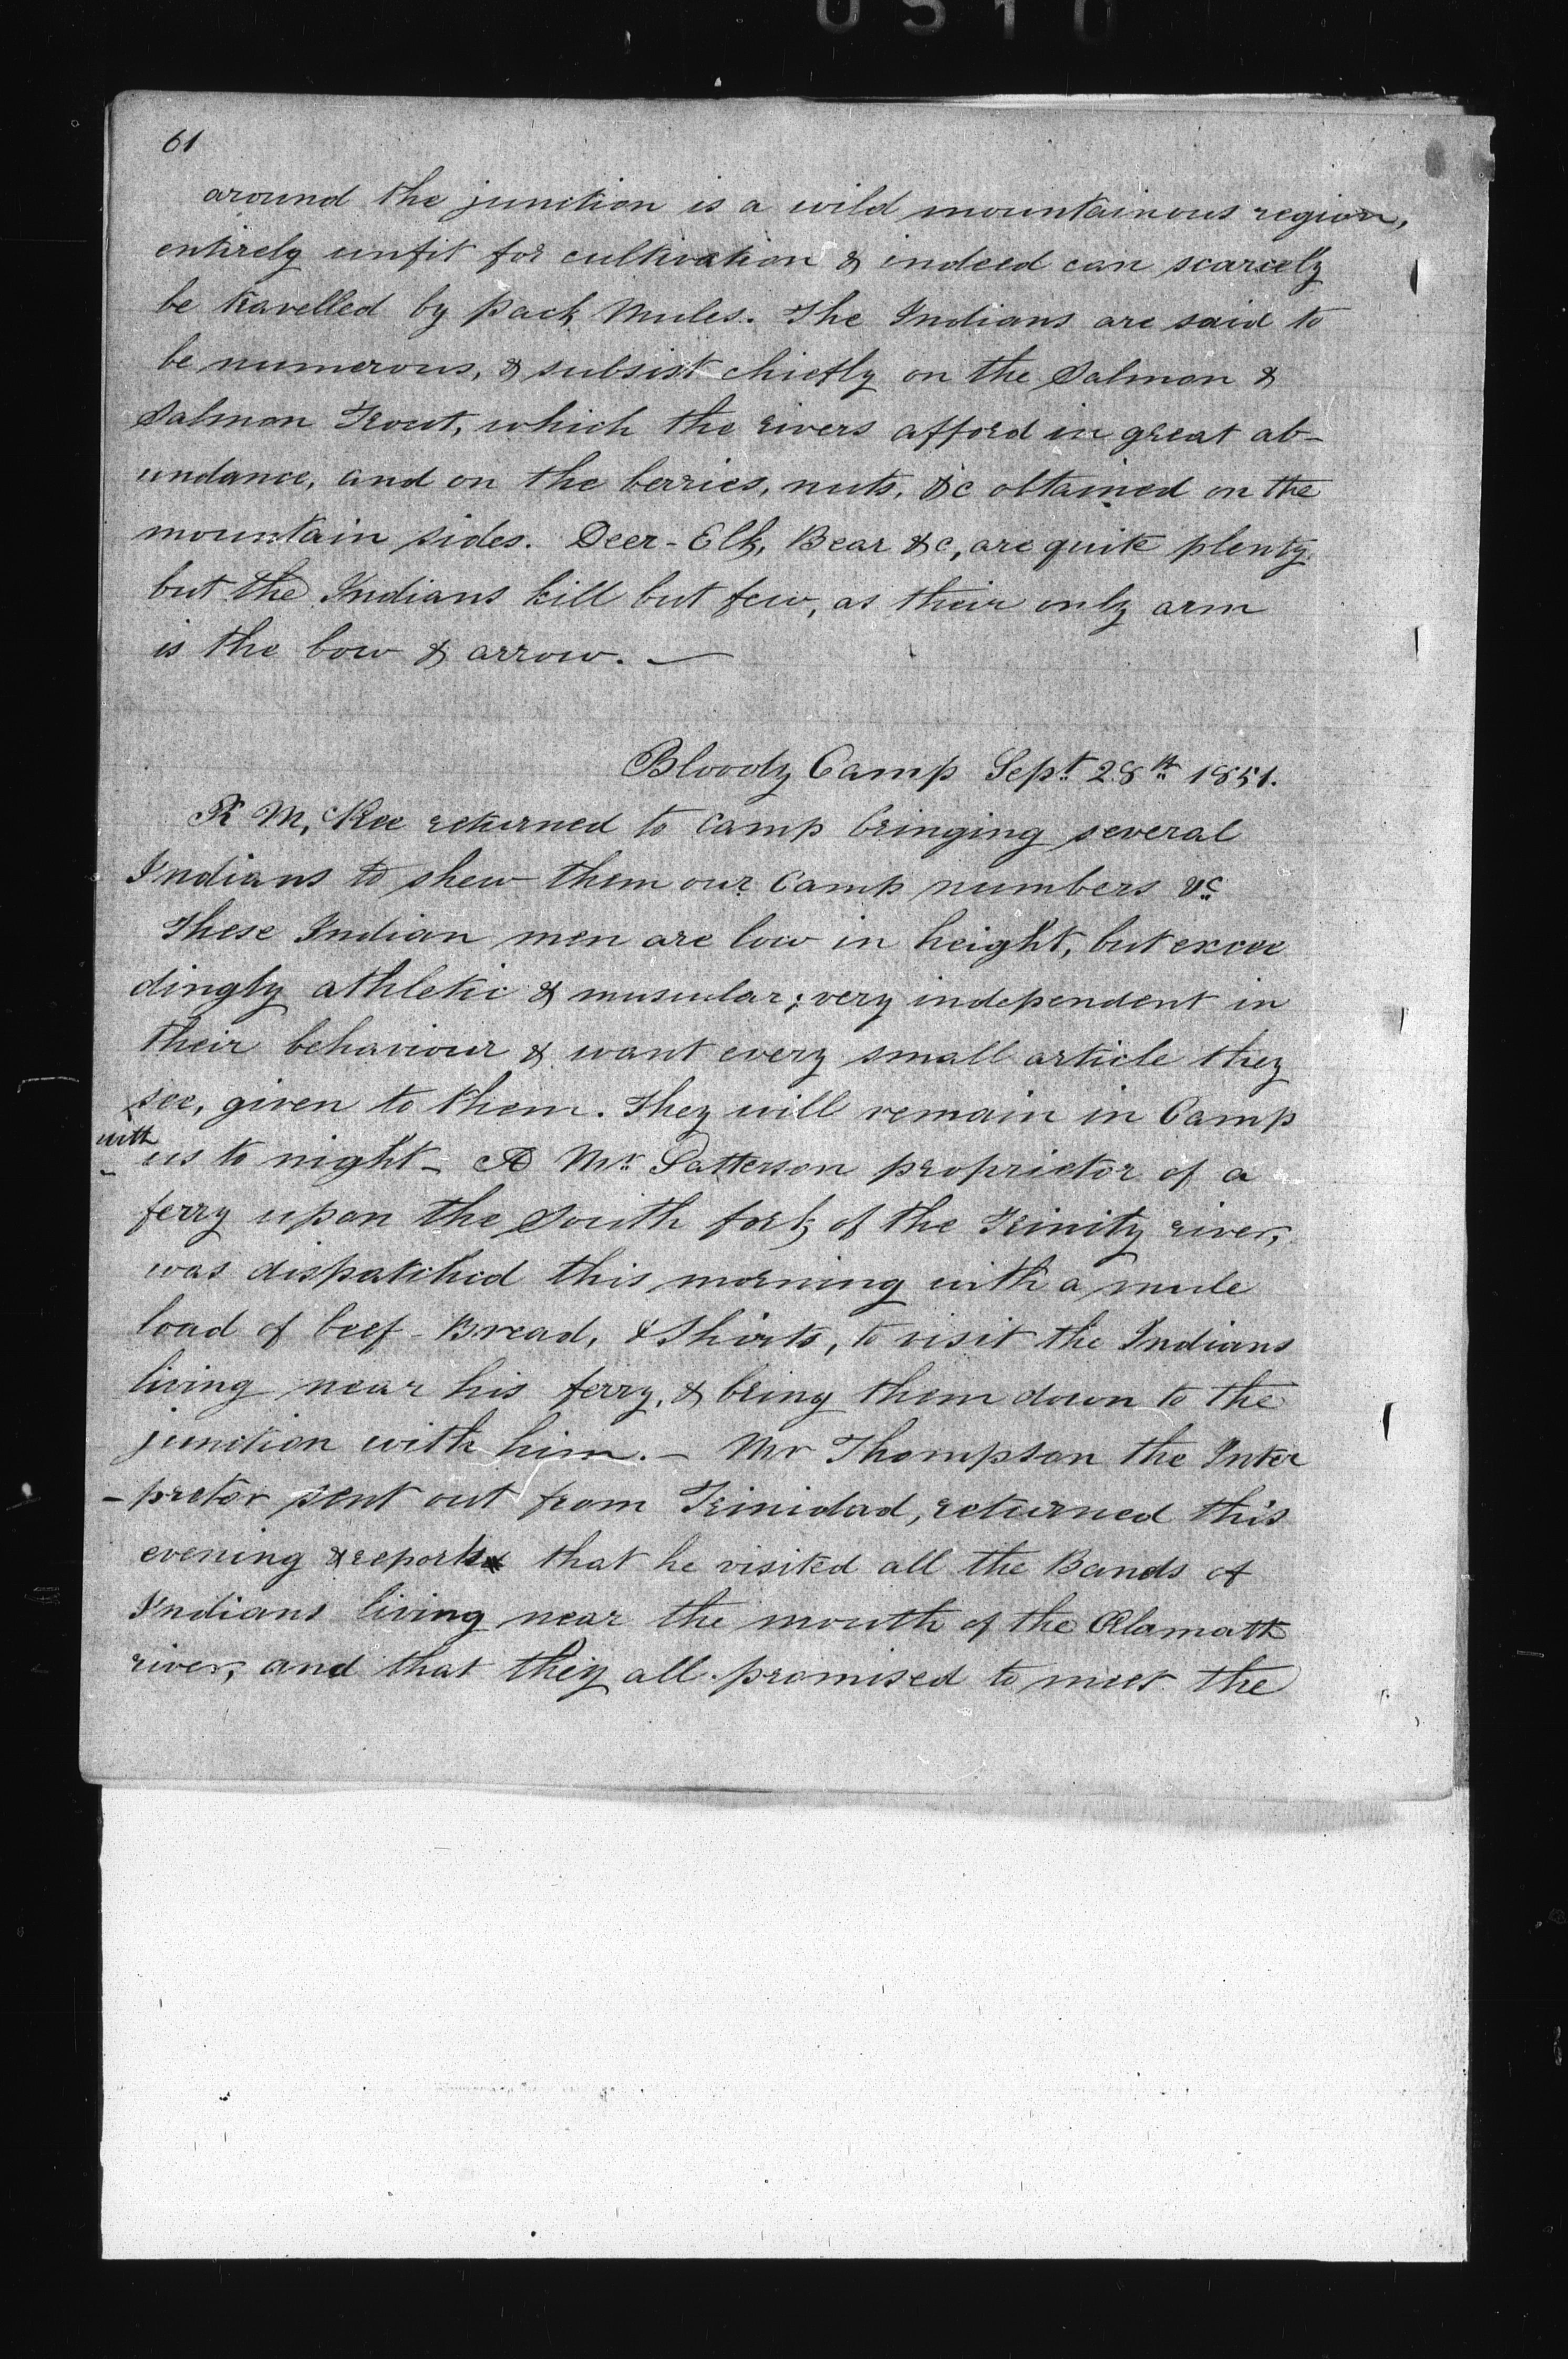 61
around the junction is a wild mountainous region,
entirely unfit for cultivation & indeed can scarcely
be travelled by pack mules. The Indians are said to
be numerous, & subsist chiefly on the Salmon &
Salmon Trout, which the rivers afford in great ab-
undance, and on the berries, nuts, &c obtained on the
mountain sides. Deer - Elk, Bear &c, are quite plenty.
but the Indians kill but few, as their only arm
is the bow & arrow. —
Bloody Camp Sept. 28th 1851.
R McKee returned to Camp bringing several
Indians to shew them our Camp numbers &c
These Indian men are low in height, but excee
dingly athletic & muscular; very independent in
their behaviour & want every small article they
see, given to them. They will remain in Camp
with
- us to night - A Mr. Patterson proprietor of a
ferry upon the South fork of the Trinity river,
was dispatched this morning with a mule
load of beef - Bread, & Shirts, to visit the Indians
living near his ferry, & bring them down to the
junction with him. - Mr Thompson the Inter
- preter sent out from Trinidad, returned this
evening & reports that he visited all the Bands of
Indians living near the mouth of the Clamath
river, and that they all promised to meet the